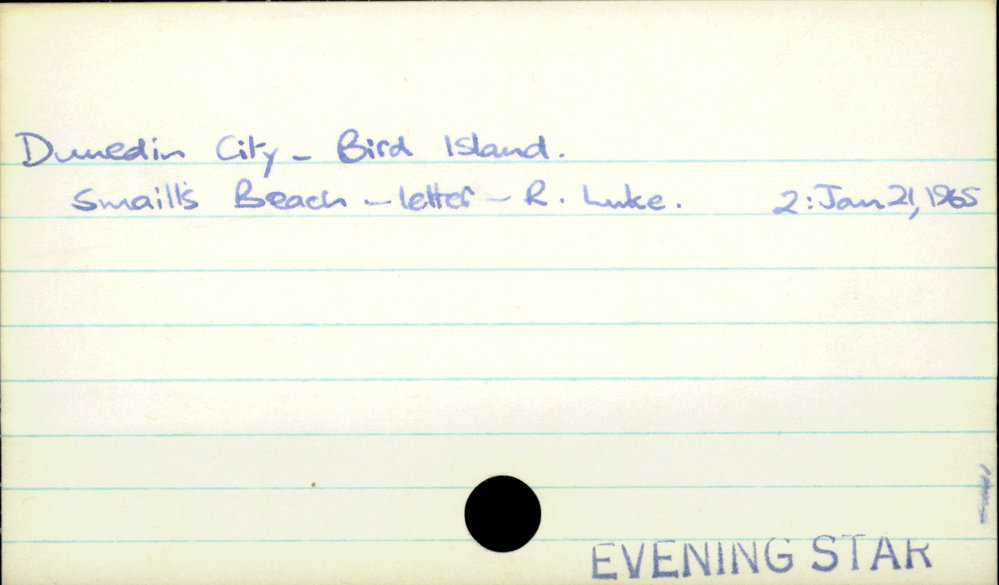 Dunedin City - Bird Island.
Smaill's Beach - letter - R. Luke. 2: Jan 21, 1965
EVENING STAR